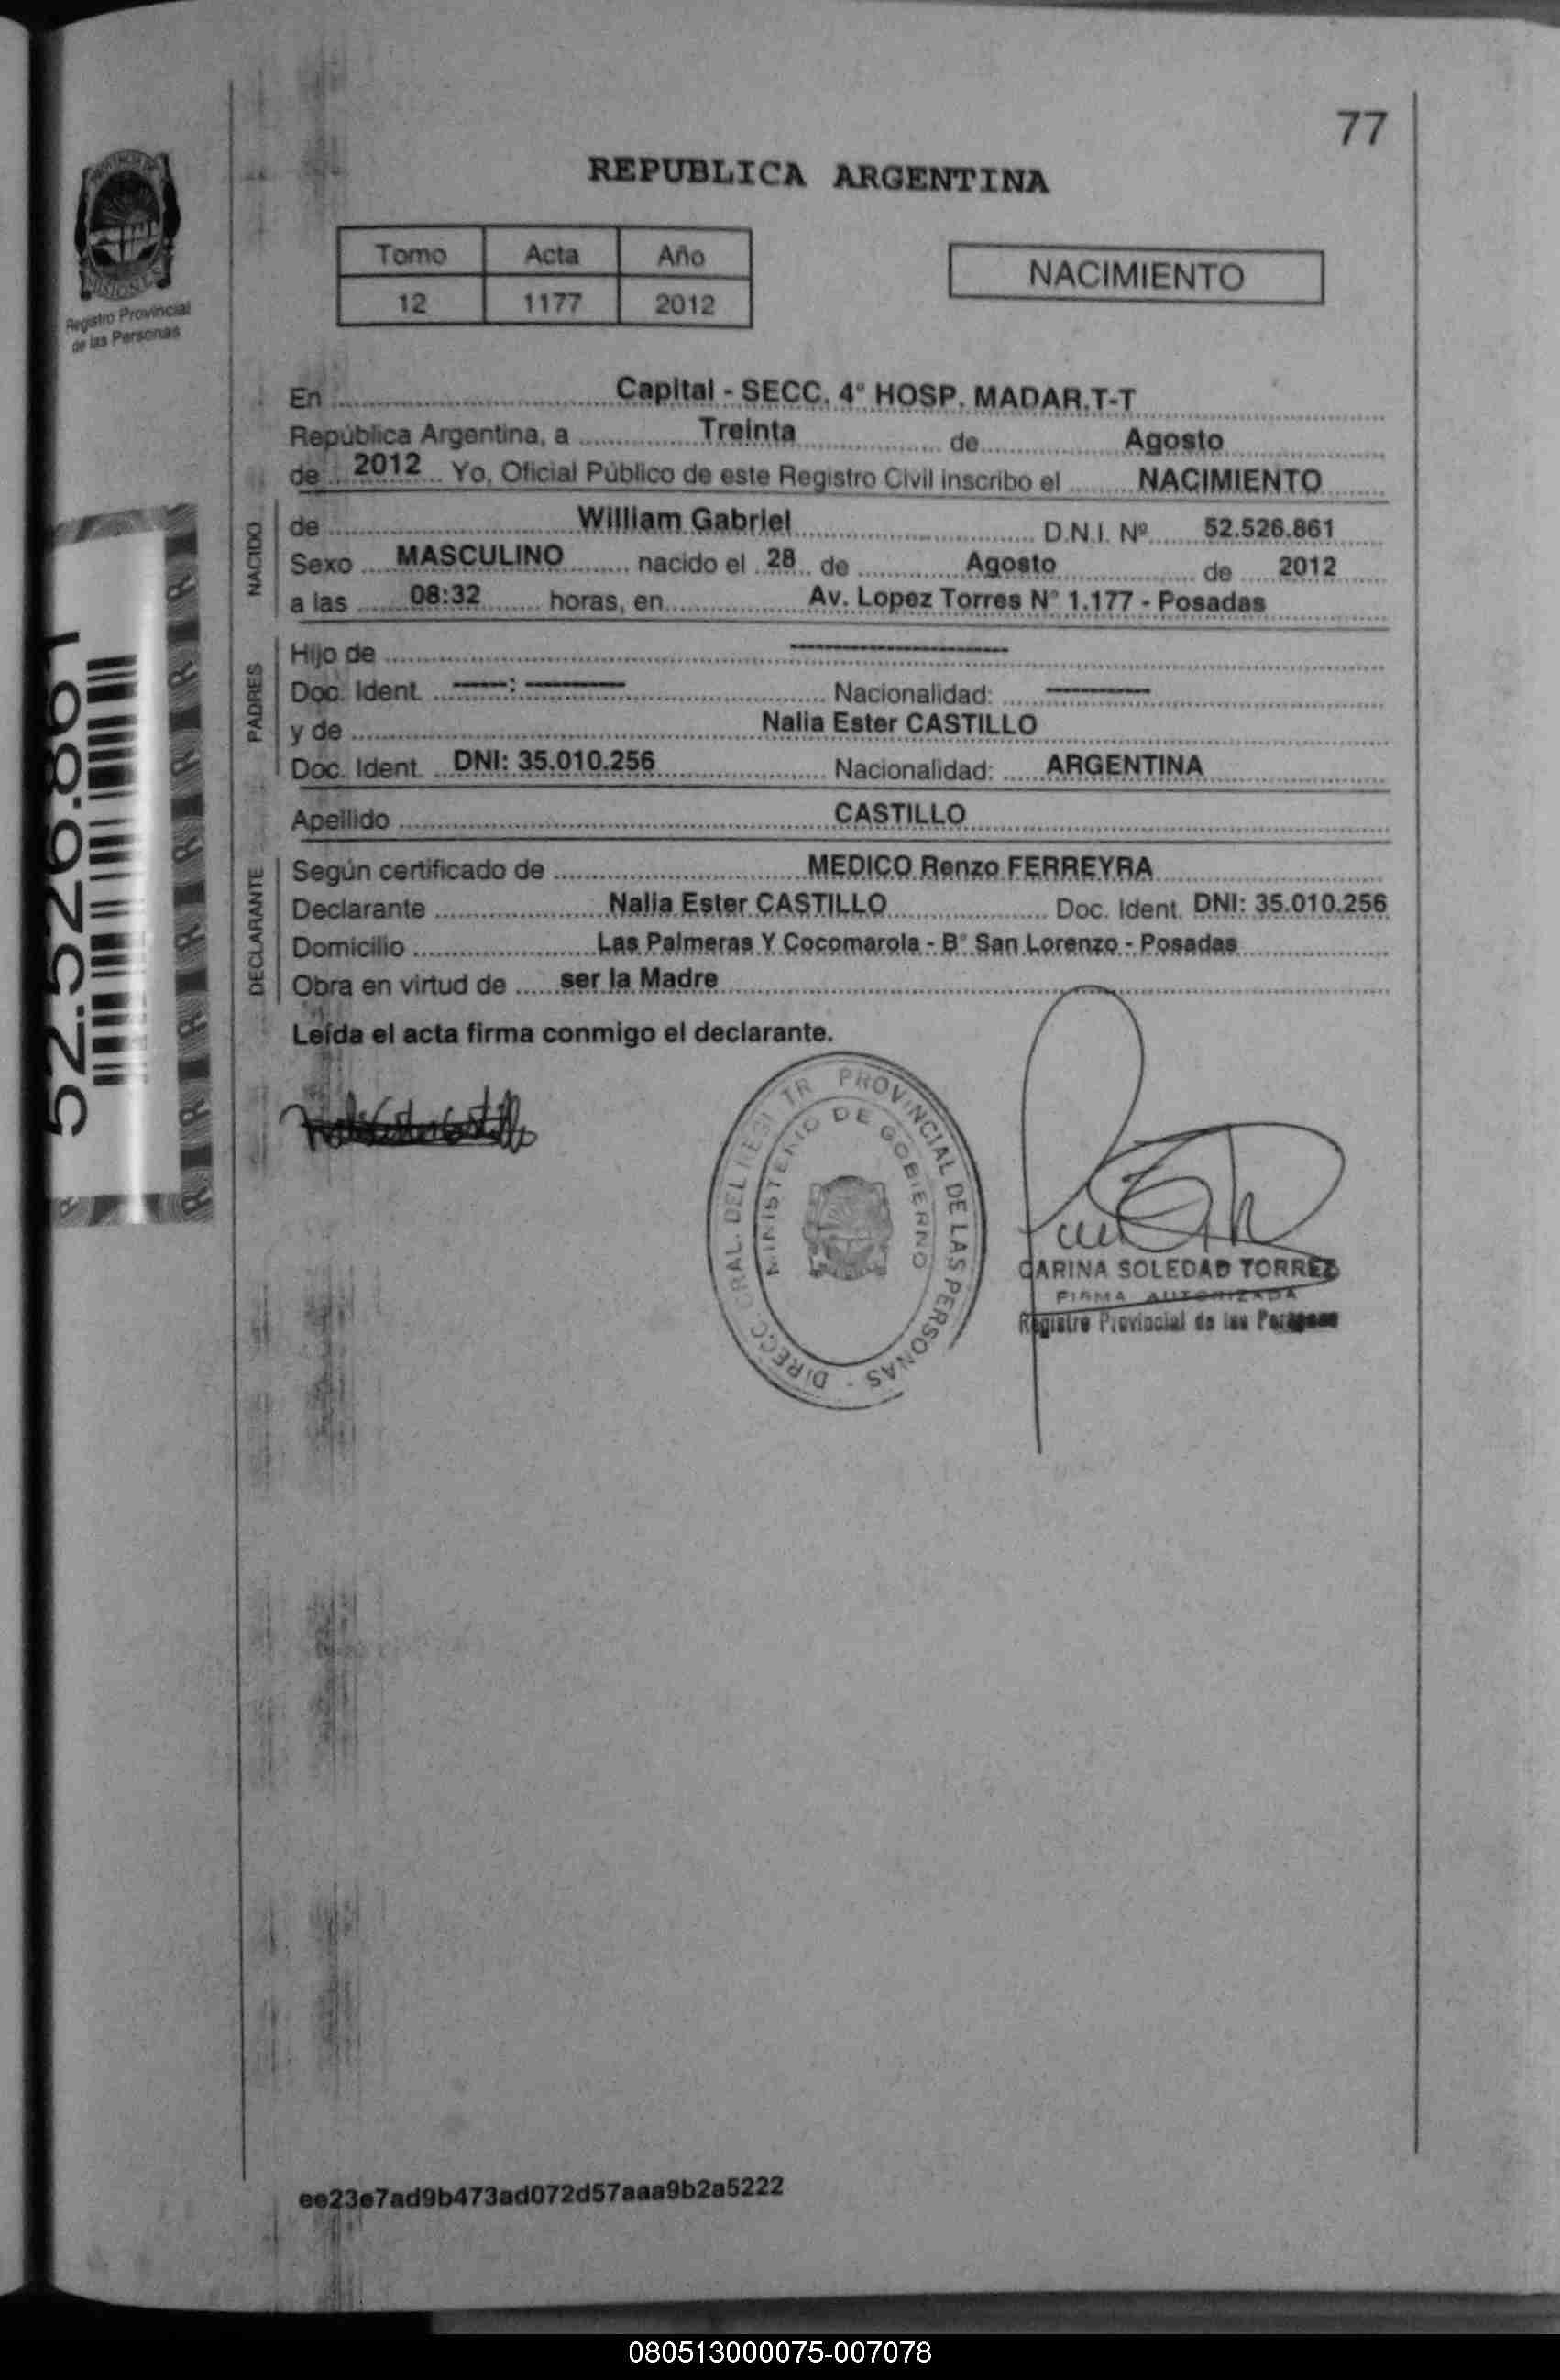 77
REPUBLICA ARGENTINA
Tomo Acta Año
12 1177 2012
NACIMIENTO
Registro Provincial
de las Personas
En Capital - SECC. 4° HOSP. MADAR.T-T
República Argentina, a Treinta de Agosto
de 2012 Yo, Oficial Público de este Registro Civil inscribo el NACIMIENTO
NACIDO
de William Gabriel D.N.I. Nº 52.526.861
Sexo MASCULINO nacido el 28 de Agosto de 2012
a las 08:32 horas, en Av. Lopez Torres N° 1.177 - Posadas
PADRES
Hijo de
Doc. Ident. : Nacionalidad:
y de Nalia Ester CASTILLO
Doc. Ident. DNI: 35.010.256 Nacionalidad: ARGENTINA
Apellido CASTILLO
DECLARANTE
Según certificado de MEDICO Renzo FERREYRA
Declarante Nalia Ester CASTILLO Doc. Ident. DNI: 35.010.256
Domicilio Las Palmeras Y Cocomarola - B° San Lorenzo - Posadas
Obra en virtud de ser la Madre
Leída el acta firma conmigo el declarante.
52.526.861
DIRECC. GRAL. DEL REGISTR PROVINCIAL DE LAS PERSONAS -
MINISTERIO DE GOBIERNO
CARINA SOLEDAD TORREZ
FIRMA AUTORIZADA
Registro Provincial de las Personas
ee23e7ad9b473ad072d57aaa9b2a5222
080513000075-007078